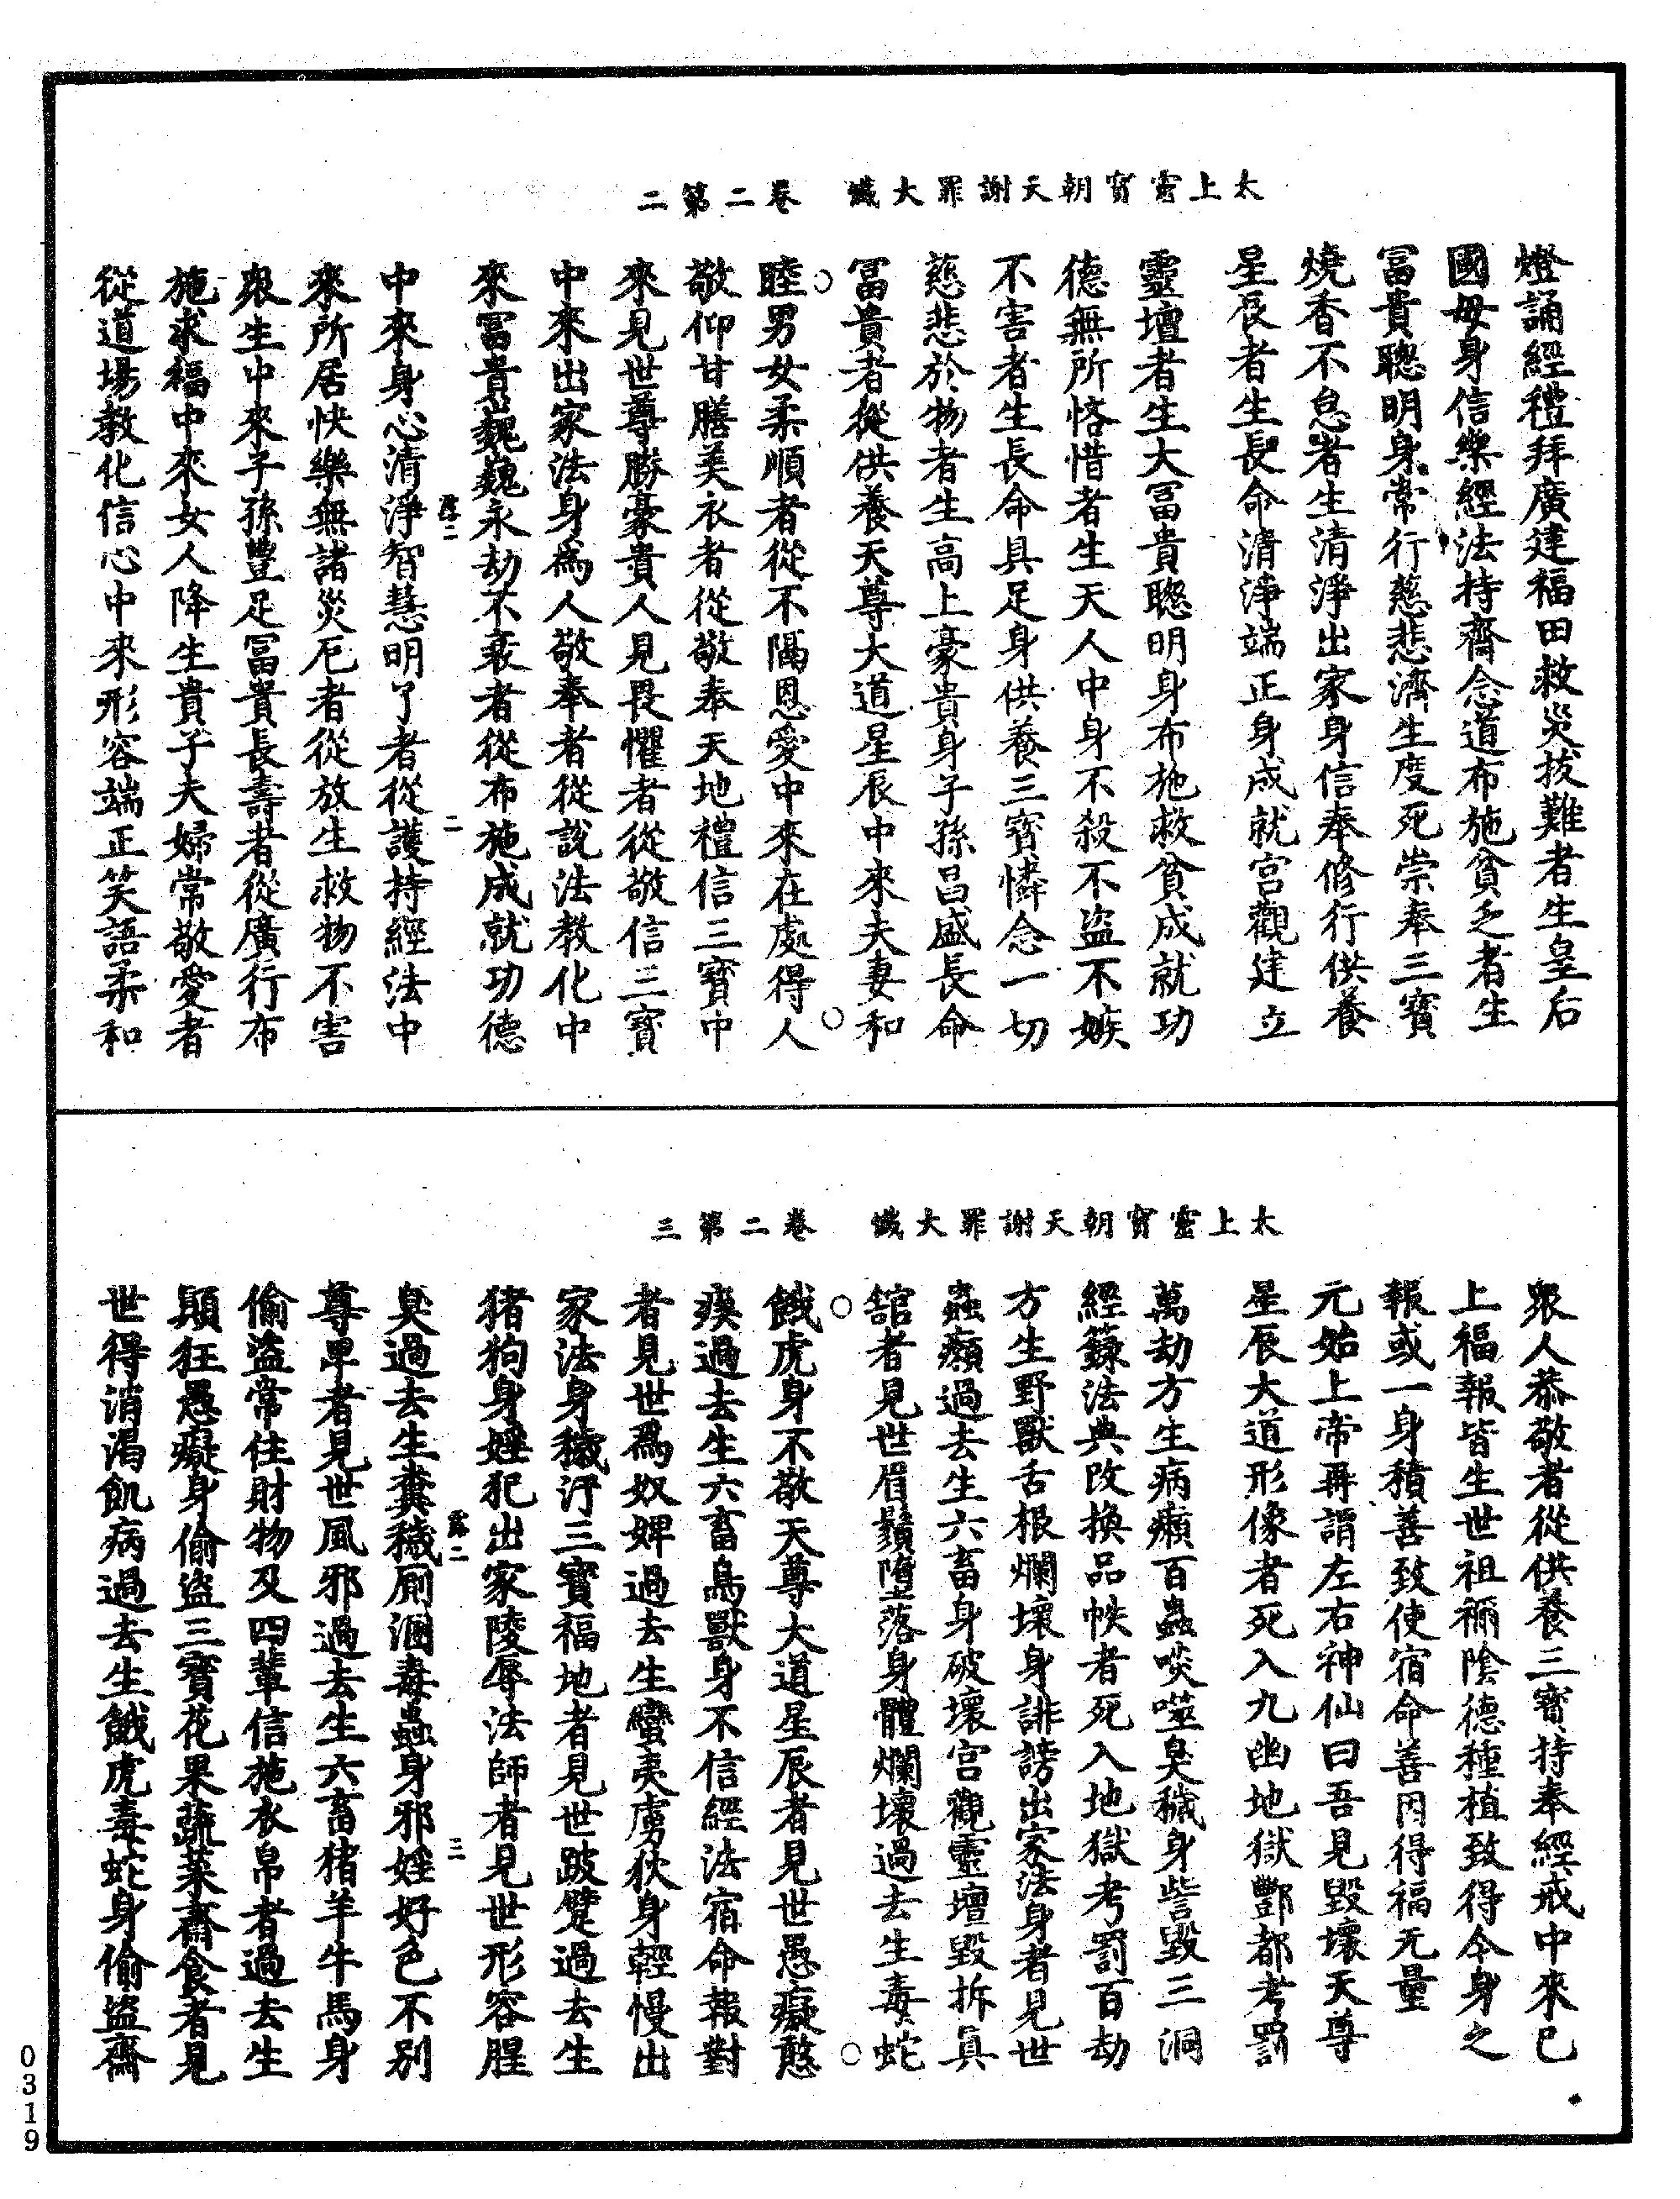 太上靈寶朝天謝罪大懺　卷二第二
燈誦經禮拜廣建福田救災拔難者生皇后
國母身信樂經法持齋念道布施貧乏者生
冨貴聰明身常行慈悲濟生度死崇奉三寶
燒香不怠者生清淨出家身信奉修行供養
星辰者生長命清淨端正身成就宫觀建立
靈壇者生大冨貴聰明身布施救貧成就功
德無所悋惜者生天人中身不殺不盜不嫉
不害者生長命具足身供養三寶憐念一切
慈悲於物者生高上豪貴身子孫昌盛長命
冨貴者從供養天尊大道星辰中來夫妻和
睦男女柔順者從不隔恩愛中來在處得人
敬仰甘膳美衣者從敬奉天地禮信三寶中
來見世尊勝豪貴人見畏懼者從敬信三寶
中來出家法身為人敬奉者從說法教化中
來冨貴巍巍永劫不衰者從布施成就功德
中來身心清淨智慧明了者從護持經法中
來所居快樂無諸災厄者從放生救物不害
衆生中來子孫豐足冨貴長壽者從廣行布
施求福中來女人降生貴子夫婦常敬愛者
從道場教化信心中來形容端正笑語柔和
露二　二
太上靈寶朝天謝罪大懺　卷二第三
衆人恭敬者從供養三寶持奉經戒中來已
上福報皆生世祖禰陰德種植致得今身之
報或一身積善致使宿命善因得福无量
元始上帝再謂左右神仙曰吾見毀壞天尊
星辰大道形像者死入九幽地獄酆都考罰
萬劫方生病癩百蟲啖噬臭穢身訾毀三洞
經籙法典改換品帙者死入地獄考罰百劫
方生野獸舌根爛壞身誹謗出家法身者見世
蟲癩過去生六畜身破壞宫觀靈壇毀拆真
舘者見世眉鬚墮落身體爛壞過去生毒蛇
餓虎身不敬天尊大道星辰者見世愚癡憨
瘓過去生六畜鳥獸身不信經法宿命報對
者見世為奴婢過去生蠻夷虜狄身輕慢出
家法身穢汙三寶福地者見世跛躄過去生
猪狗身婬犯出家陵辱法師者見世形容腥
臭過去生糞穢厠溷毒蟲身邪婬好色不别
尊卑者見世風邪過去生六畜猪羊牛馬身
偷盜常住財物及四輩信施衣帛者過去生
顛狂愚癡身偷盜三寶花果蔬菜齋食者見
世得消渴飢病過去生餓虎毒蛇身偷盜齋
露二　三
0319